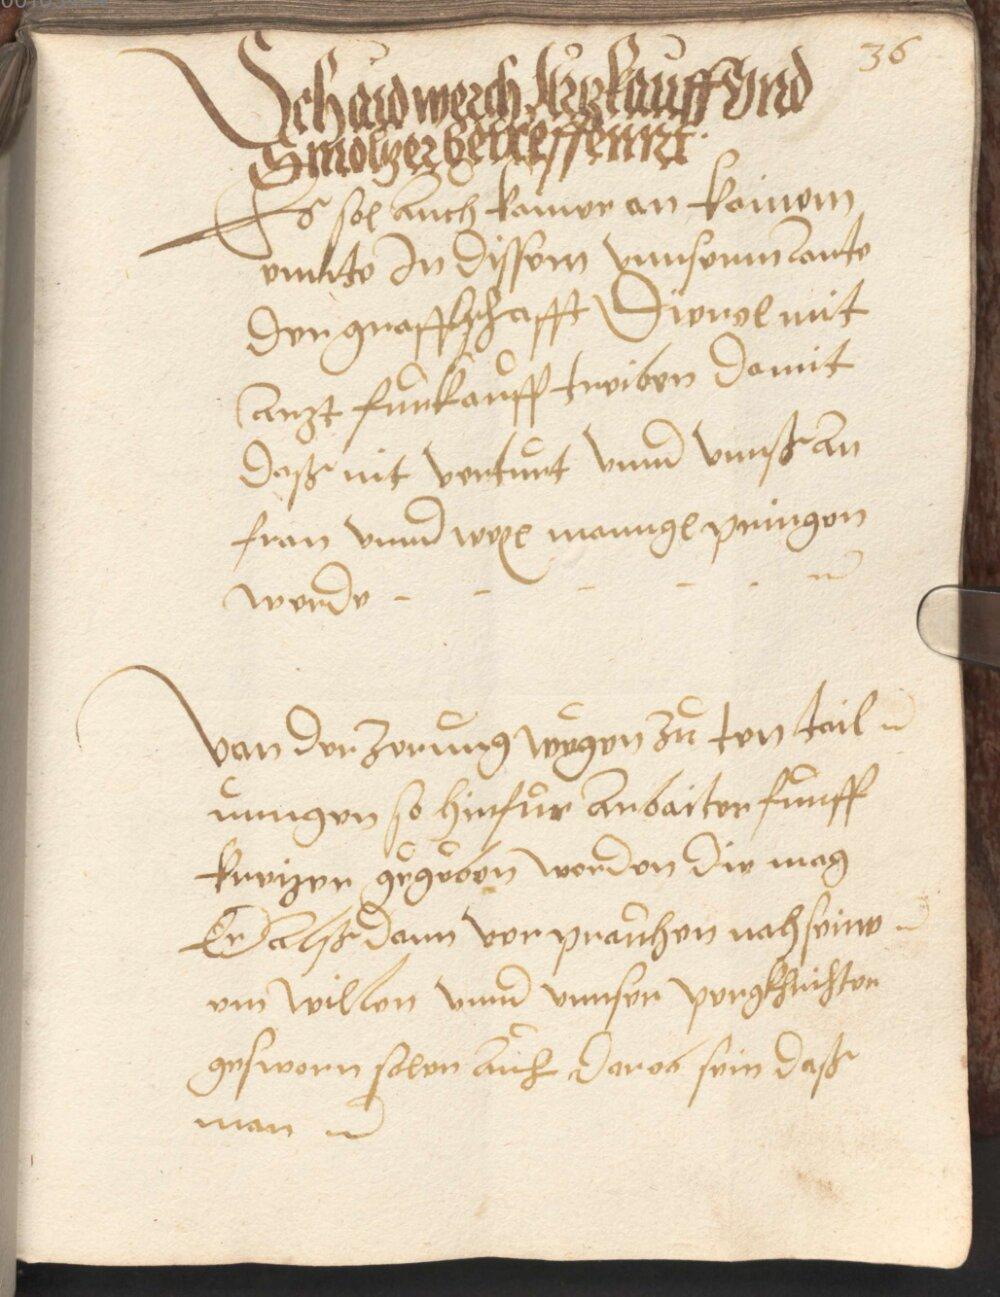 36
Schaidwerch Ärzkauff Vnd
Smoltzer betreffennt.
Es sol auch kainer an kainem
ennde In dissem vnnserm Lannde
der graffschafft Tierol mit
ärzt furkauff treiben damit
dasz nit verturt vnnd vnnsz an
fron vnnd wexl manngl pringen
werde
Von der Zerung wegen zu den tail
ungen so hinfur arbaiter funff
kreizer gegeben werden die mag
Er alsz dann ver prauchen nach seinn
em willen vnnd vnnser pergkrichter
gesworn solen auch darob sein dasz
man